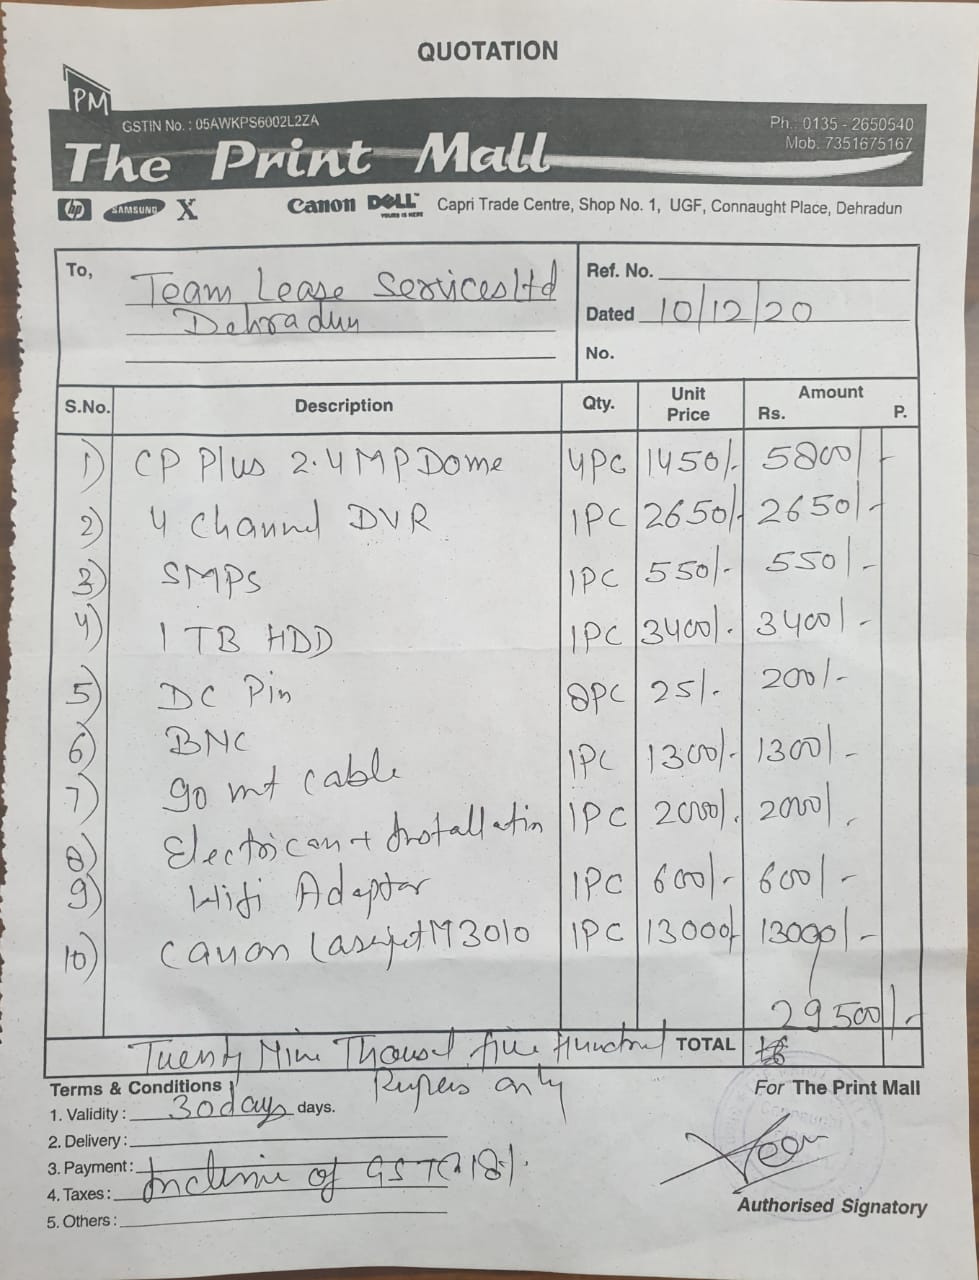 QUOTATION
PM
GSTIN No. : 05AWKPS6002L2ZA
Ph. : 0135 - 2650540
Mob. 7351675167
The Print Mall
hp SAMSUNG X Canon DELL YOURS IS HERE Capri Trade Centre, Shop No. 1, UGF, Connaught Place, Dehradun
To, Team Lease Services Ltd
Dehradun
Ref. No.
Dated 10/12/20
No.
S.No. Description Qty. Unit Price Amount Rs. P.
1) CP Plus 2.4MP Dome 4PC 1450/- 5800/-
2) 4 Channel DVR 1PC 2650/- 2650/-
3) SMPS 1PC 550/- 550/-
4) 1 TB HDD 1PC 3400/- 3400/-
5) DC Pin 8PC 25/- 200/-
6) BNC
7) 90 mt cable 1PC 1300/- 1300/-
8) Electrican + Installatin 1PC 2000/- 2000/-
9) Wifi Adaptor 1PC 600/- 600/-
10) Canon Laserjet M3010 1PC 13000/- 13000/-
29500/-
Twenty Nine Thousd five Hundred TOTAL
Rupees only
Terms & Conditions
For The Print Mall
1. Validity : 30 days days.
2. Delivery :
3. Payment :
4. Taxes : Inclusive of GST @ 18%.
5. Others :
Authorised Signatory